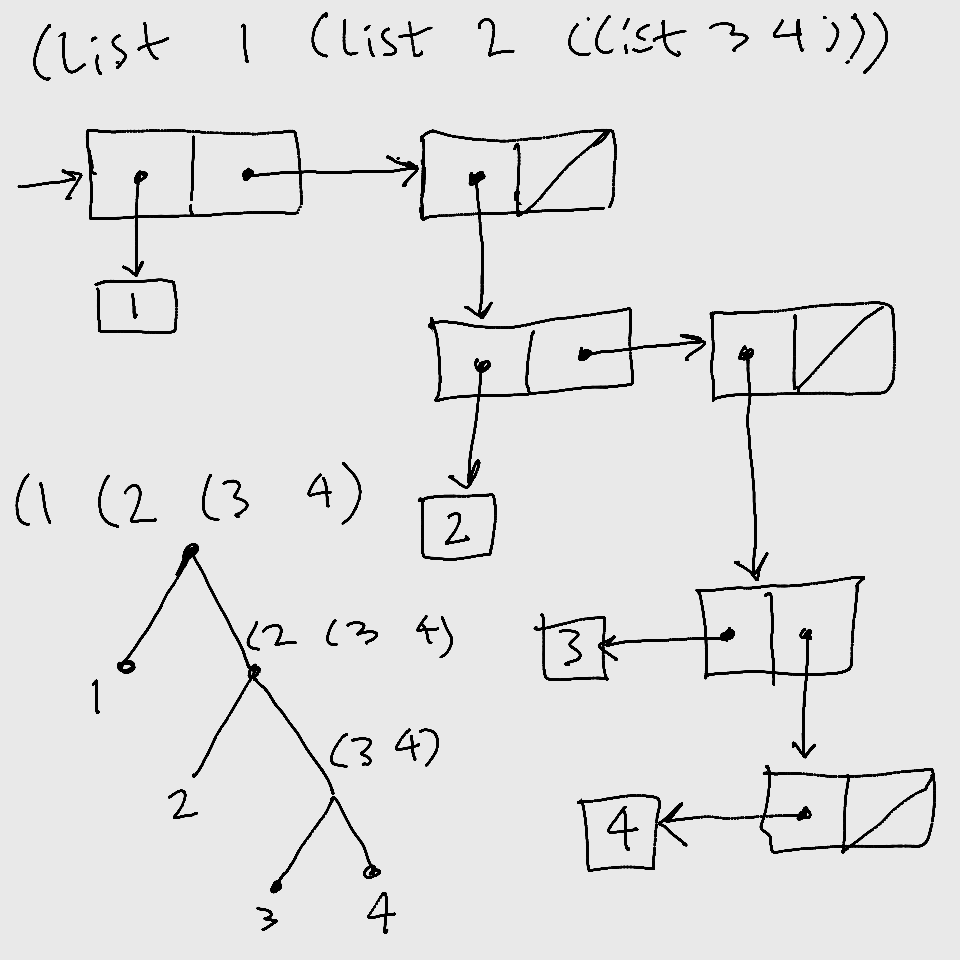 (list 1 (list 2 (list 3 4)))
1
2
(1 (2 (3 4)
(2 (3 4)
3
1
(3 4)
2
4
3 4